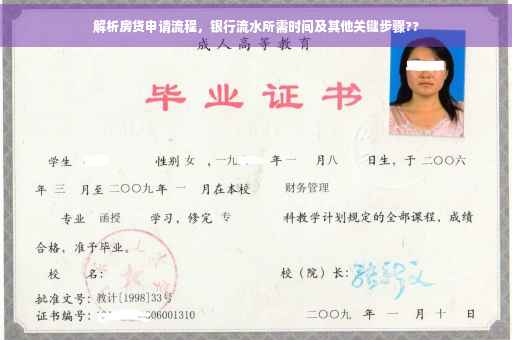 解析房贷申请流程，银行流水所需时间及其他关键步骤??
成人高等教育
毕业证书
学生 性别 女 ，一九 年 一 月 八 日生，于 二〇〇六
年 三 月至 二〇〇九 年 一 月在本校 财务管理
专业 函授 学习，修完 专 科教学计划规定的全部课程，成绩
合格，准予毕业。
校 名： 校（院）长：
批准文号：教计[1998]33号
证书编号： 06001310 二〇〇九 年 一 月 十 日